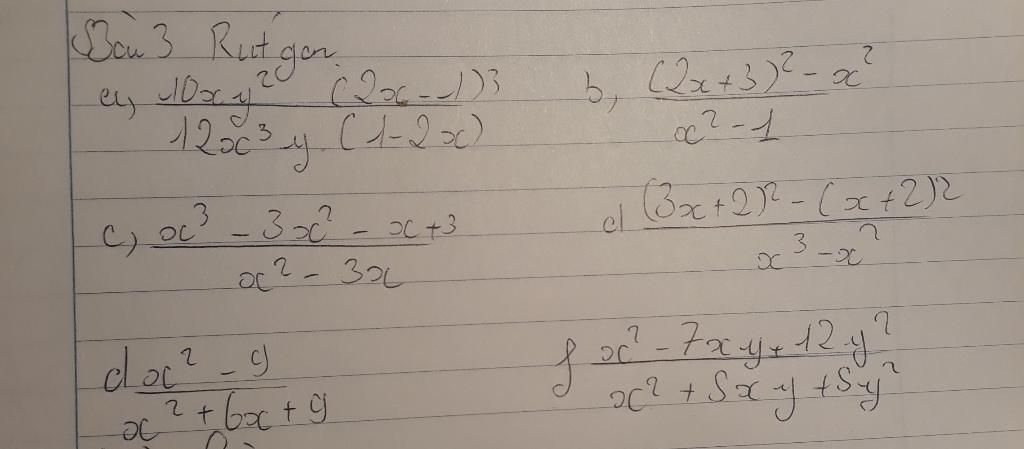 Bài 3 Rút gọn.
a, 10xy² (2x-1)³ / 12x³y.(1-2x) b, (2x+3)² - x² / x² - 1
c, x³ - 3x² - x + 3 / x² - 3x d (3x+2)² - (x+2)² / x³ - x²
d x² - 9 / x² + 6x + 9 f x² - 7xy + 12y² / x² + 5xy + 5y²